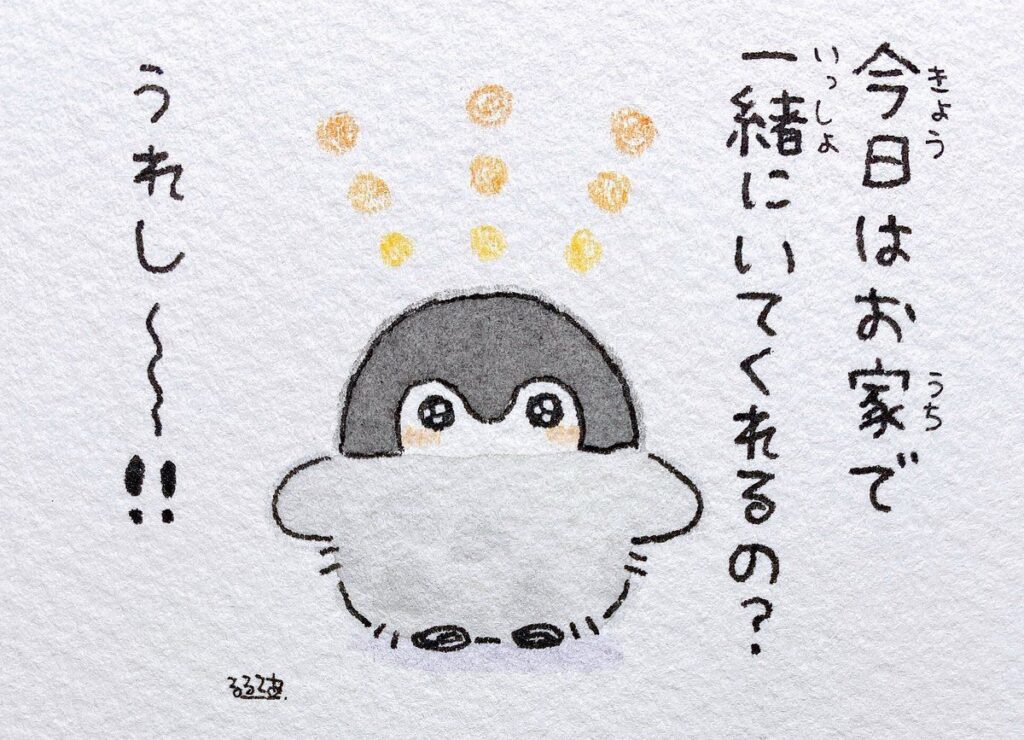 今日はお家で
きょう
うち
一緒にいてくれるの?
いっしょ
うれし〜〜!!
るるてあ